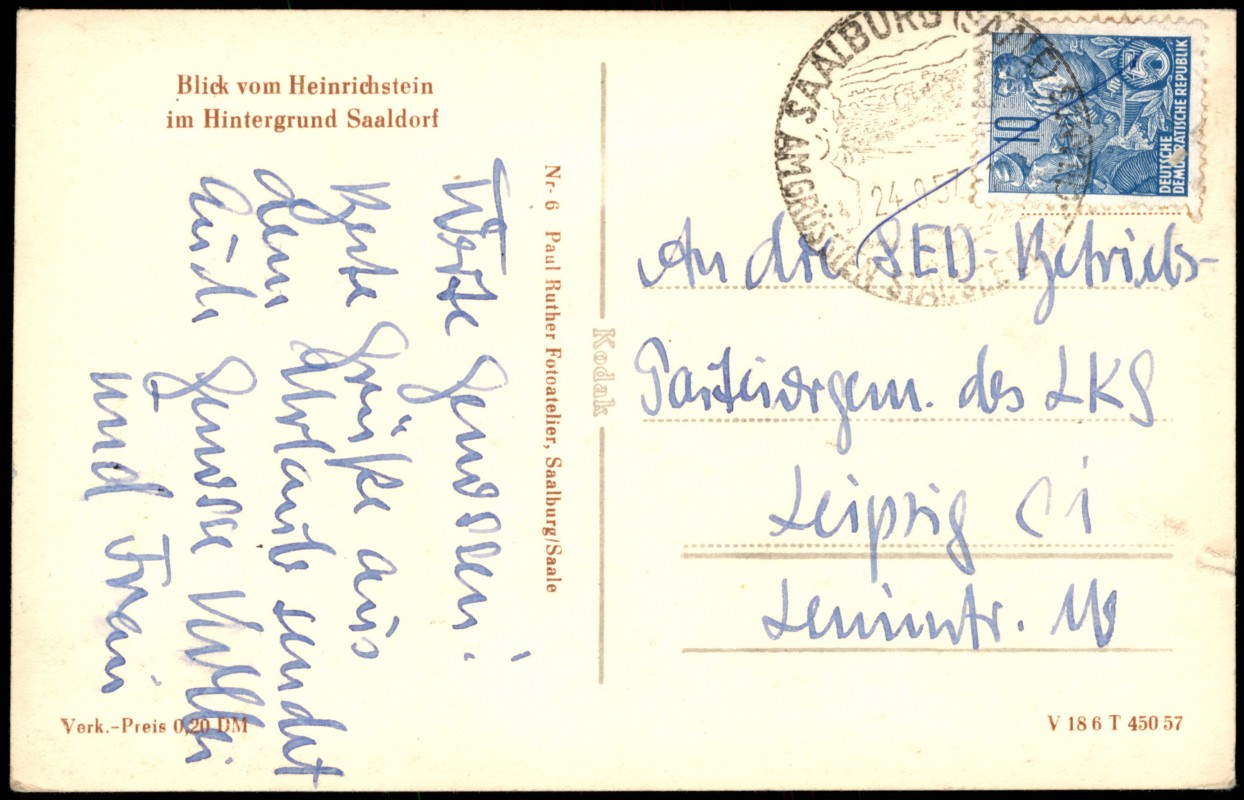 Blick vom Heinrichstein
im Hintergrund Saaldorf
Werte Genossen!
Beste Grüße aus
dem Urlaub sendet
Euch Genosse
und Frau
Nr. 6 Paul Ruther Fotoatelier, Saalburg/Saale
Kodak
Verk.-Preis 0,20 DM
SAALBURG (SAALE)
AM GRÖSSTEN
24. 57
10
5
DEUTSCHE
DEMOKRATISCHE REPUBLIK
An die SED-Betriebs-
Parteiorgan. des LKG
Leipzig C1
Leninstr. 16
V 18 6 T 450 57